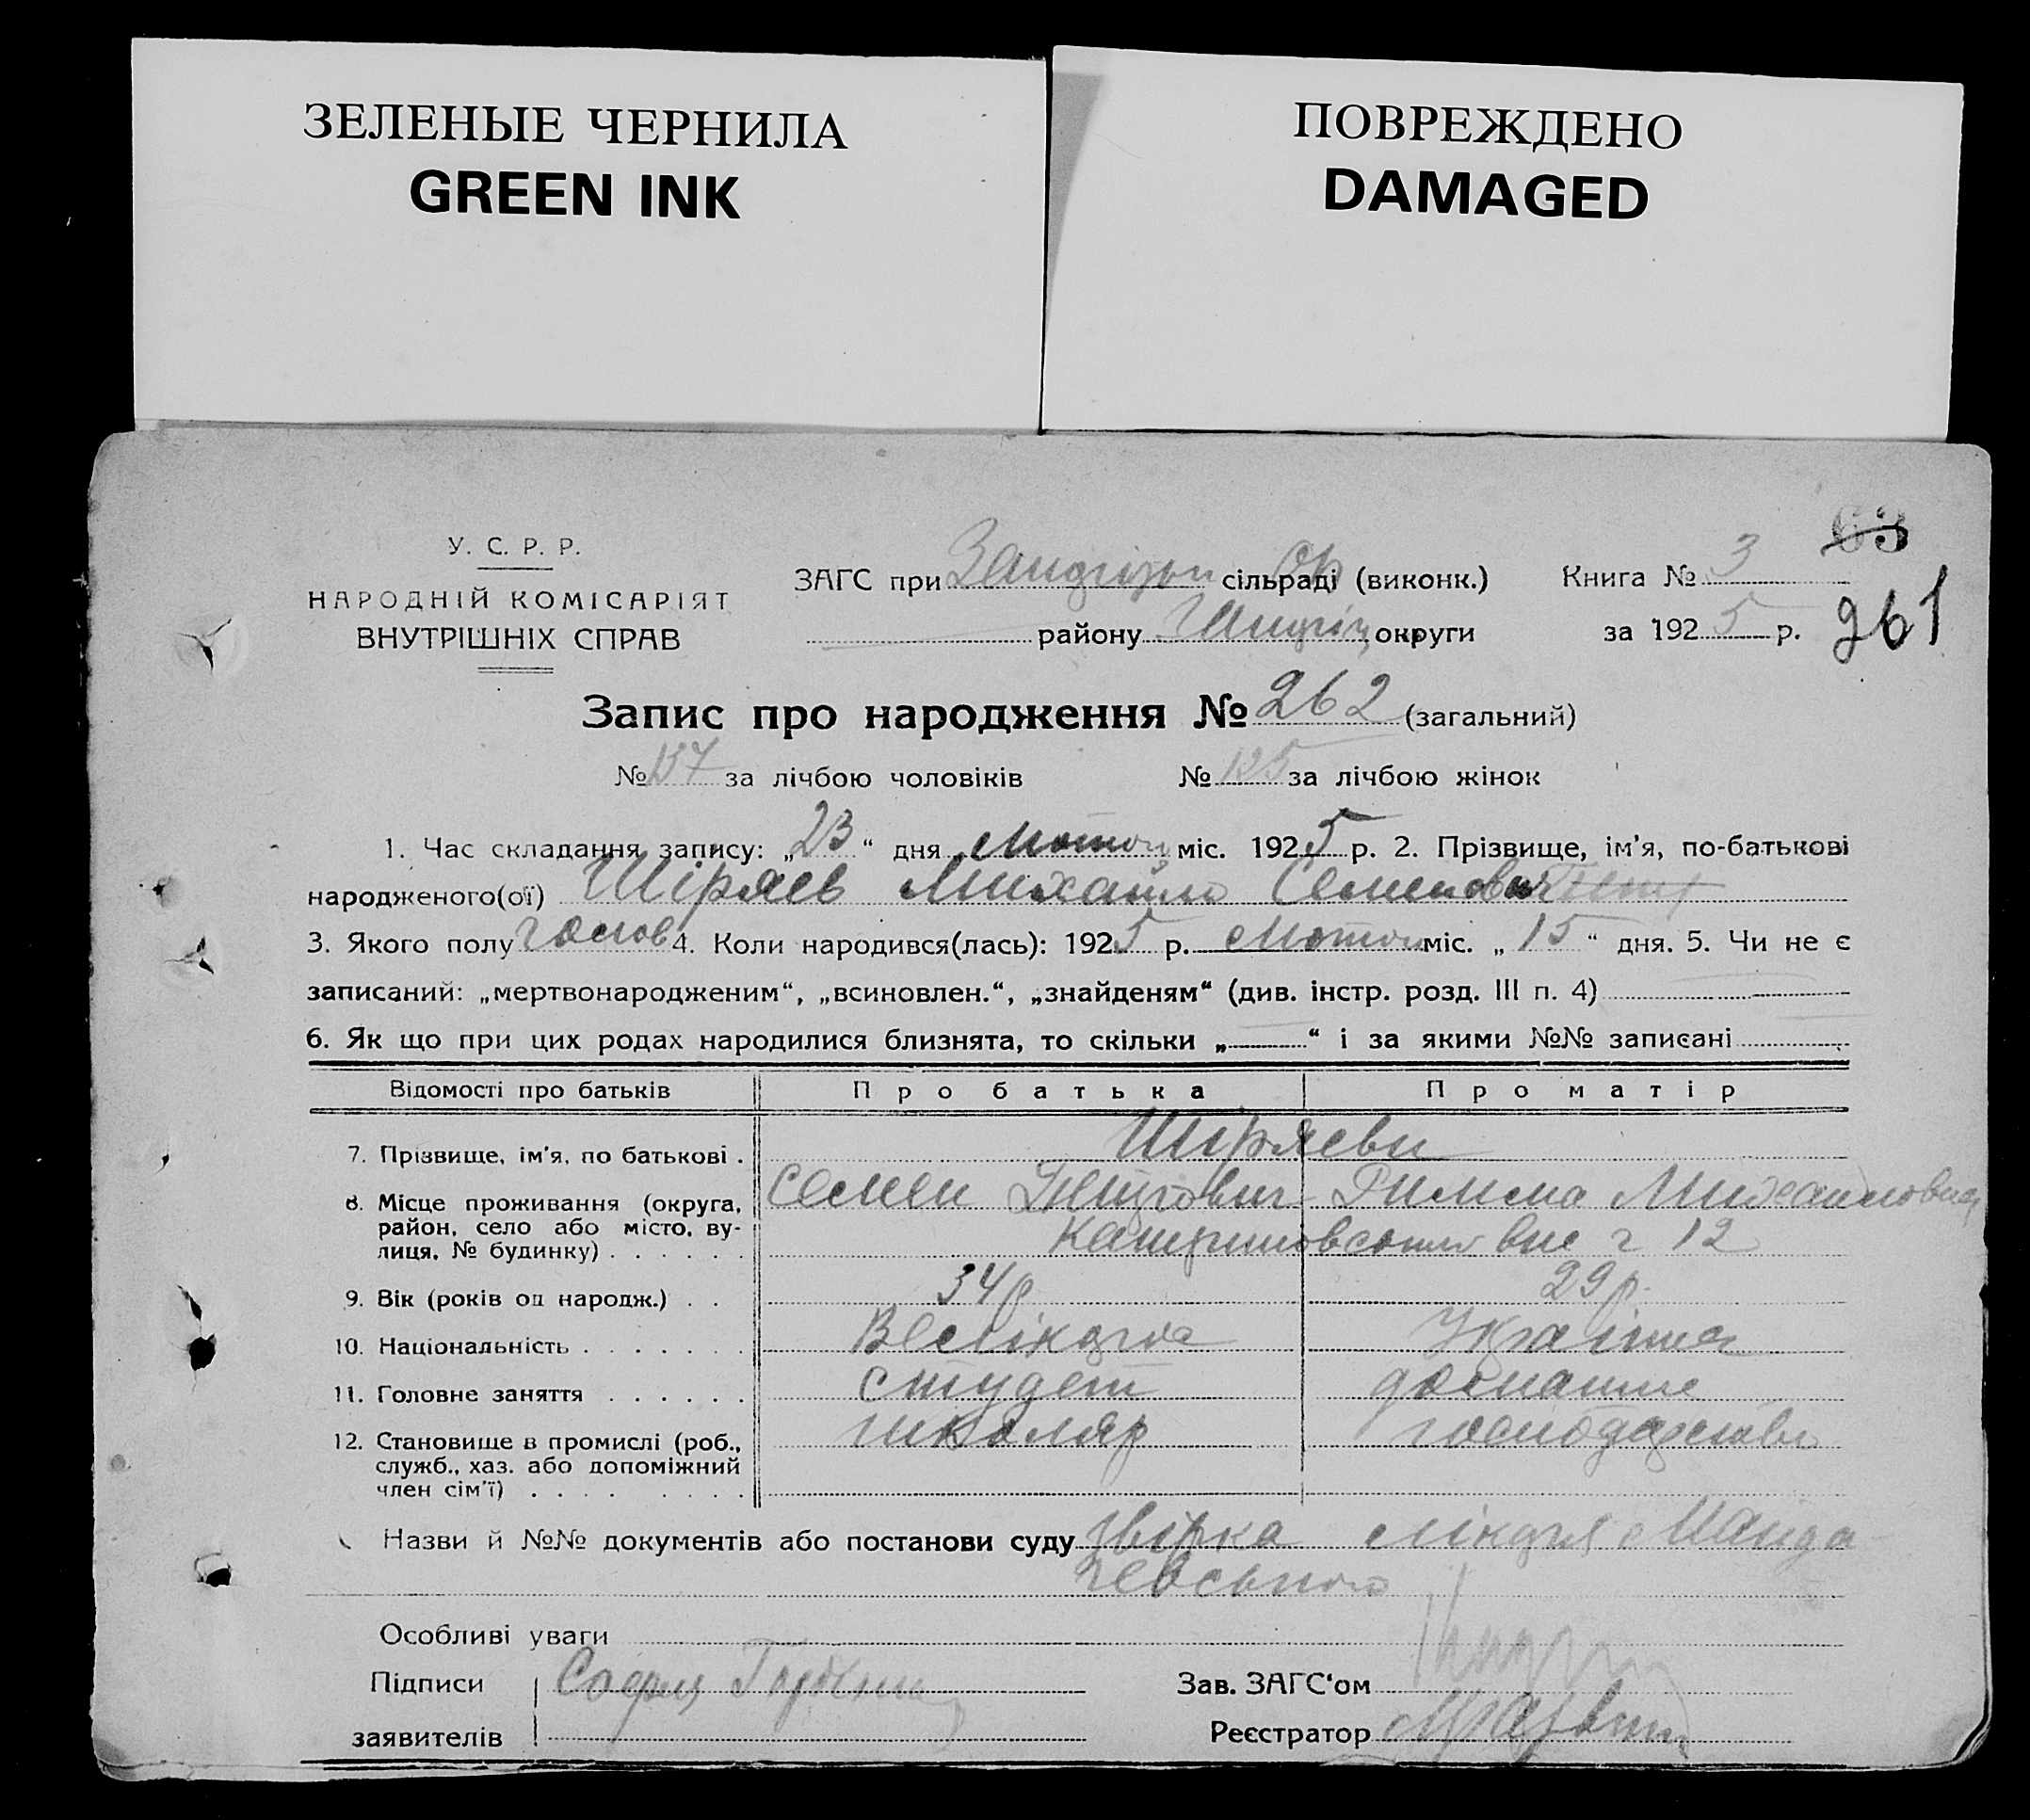 ЗЕЛЕНЫЕ ЧЕРНИЛА
GREEN INK
ПОВРЕЖДЕНО
DAMAGED
63
У. С. Р. Р.
НАРОДНІЙ КОМІСАРІЯТ
ВНУТРІШНІХ СПРАВ
ЗАГС при сільраді (виконк.) Книга № 3
району округи за 192 5 р. 261
Запис про народження № 262 (загальний)
№ 137 за лічбою чоловіків № 125 за лічбою жінок
1. Час складання запису: „23“ дня лютого міс. 192 5 р. 2. Прізвище, ім'я, по-батькові
народженого(ої) Шіряев Михайло Семенович
3. Якого полу чолов 4. Коли народився(лась): 192 5 р. лютого міс. „15“ дня. 5. Чи не є
записаний: „мертвонародженим“, „всиновлен.“, „знайденям“ (див. інстр. розд. III п. 4)
6. Як що при цих родах народилися близнята, то скільки „ “ і за якими №№ записані
Відомості про батьків Про батька Про матір
7. Прізвище, ім'я, по батькові . Ширяеви
8. Місце проживання (округа, Семен Римма Михайловна
район, село або місто, ву-
лиця, № будинку) . . . . . . 12
9. Вік (років од народж.) . . 34 р 29 р.
10. Національність . . . . . . . Українка
11. Головне заняття . . . . . . студент домашне
12. Становище в промислі (роб., школяр господарство
служб., хаз. або допоміжний
член сім'ї) . . . . . . . .
Назви й №№ документів або постанови суду лікаря
Особливі уваги
Підписи Зав. ЗАГС'ом
заявителів Реєстратор